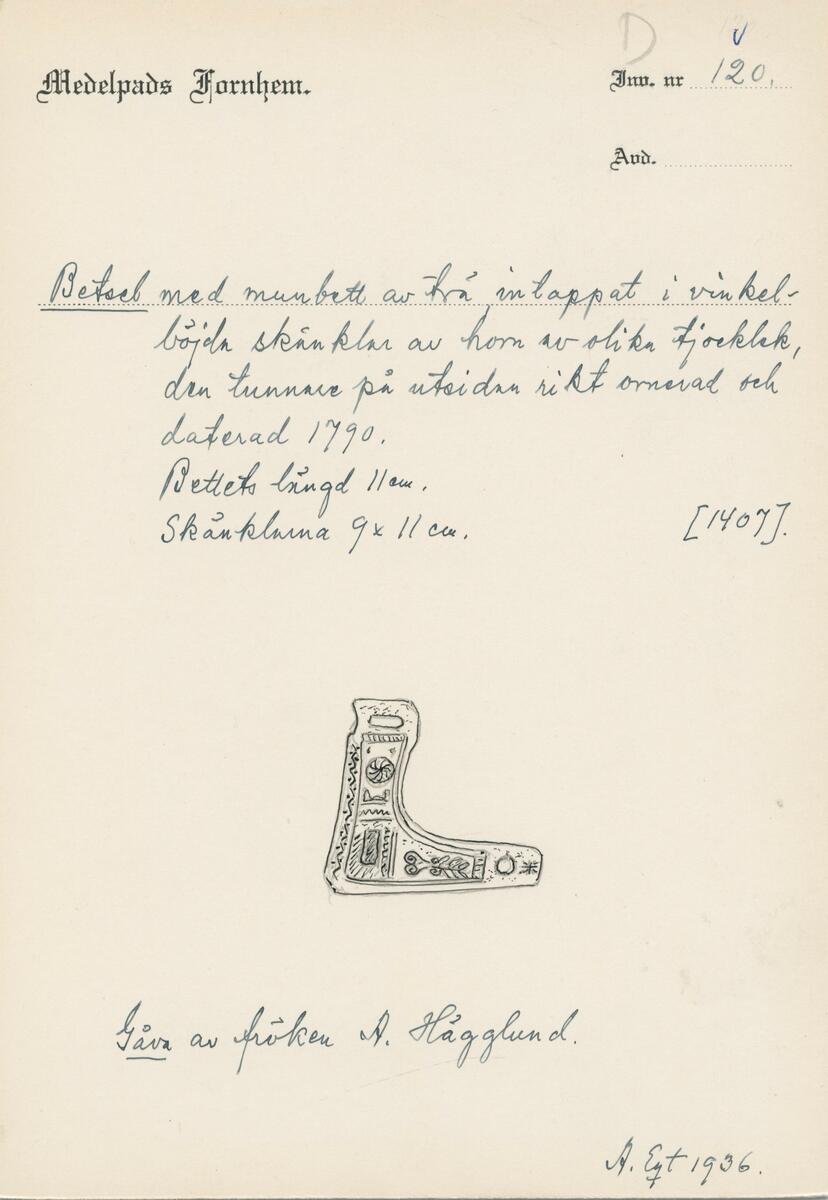 D
Medelpads Fornhem.
Inv. nr 120.
Avd.
Betsel med munbett av trä, intappat i vinkel-
böjda skänklar av horn av olika tjocklek,
den tunnare på utsidan rikt ornerad och
daterad 1790.
Bettets längd 11 cm.
Skänklarna 9 x 11 cm. [1407].
Gåva av fröken A. Hägglund.
A. Eqt 1936.